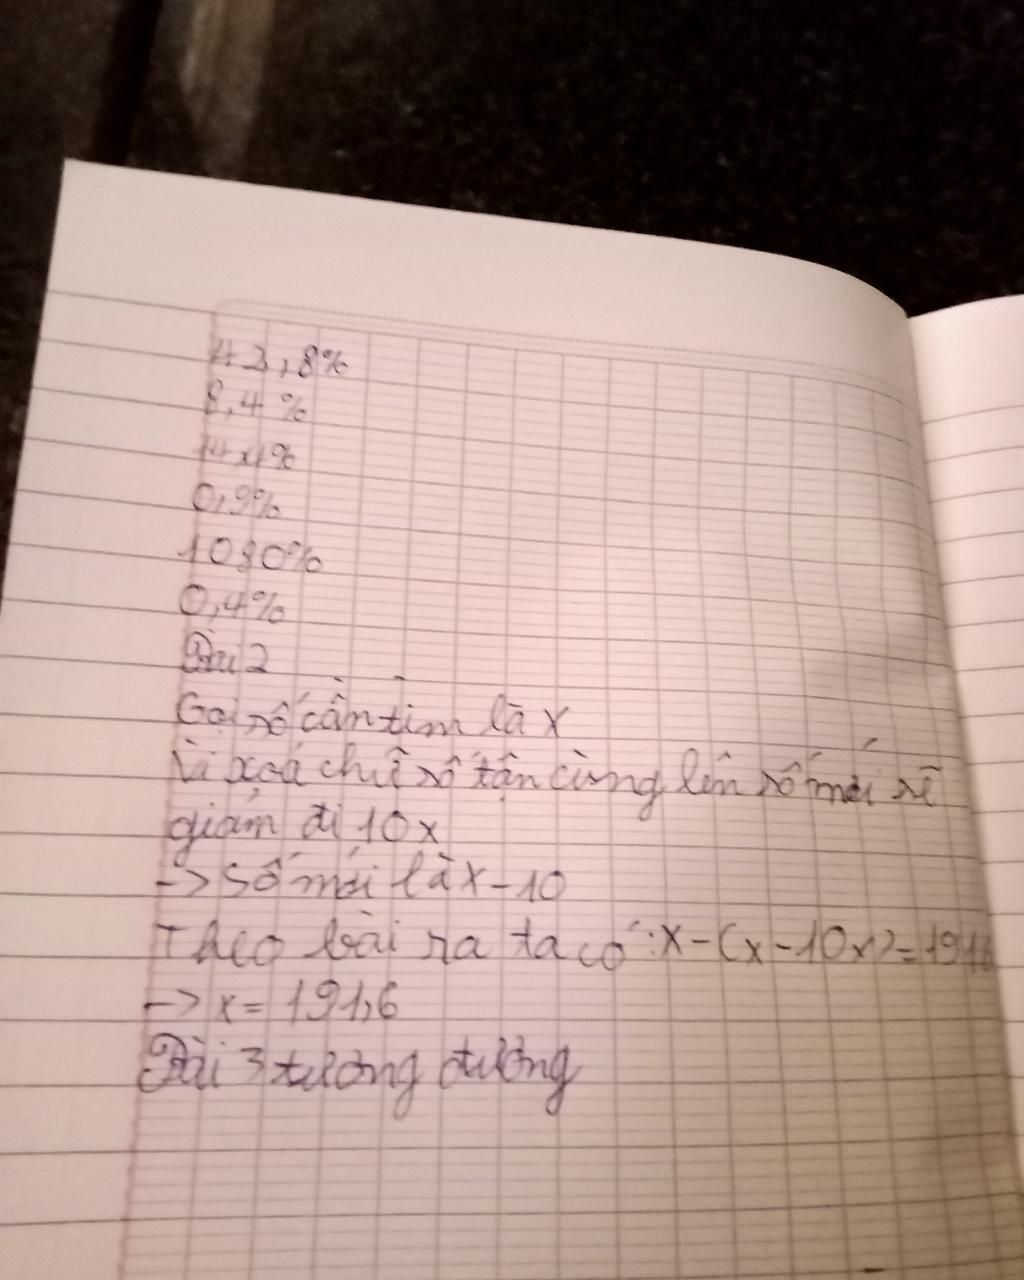 42,8%
8,4%
14,4%
0,9%
1080%
0,4%
Bài 2
Gọi số cần tìm là x
Vì xoá chữ số tận cùng lên số mới sẽ
giảm đi 10x
-> Số mới là x-10
Theo bài ra ta có: x-(x-10x)=1916
-> x= 191,6
Bài 3 tương đương